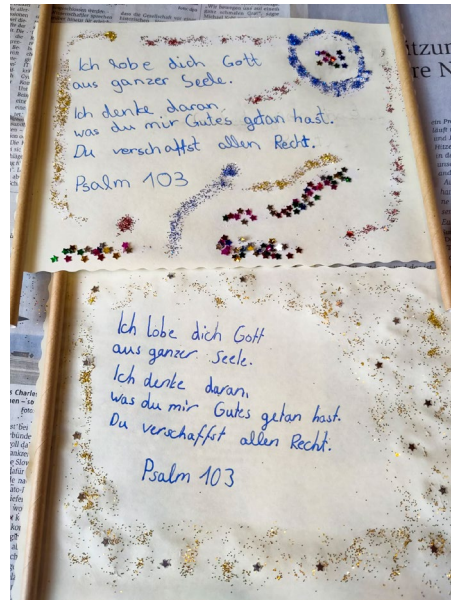 Ich lobe dich Gott
aus ganzer Seele.
Ich denke daran,
was du mir Gutes getan hast.
Du verschaffst allen Recht.
Psalm 103
Ich lobe dich Gott
aus ganzer Seele.
Ich denke daran,
was du mir Gutes getan hast.
Du verschaffst allen Recht.
Psalm 103